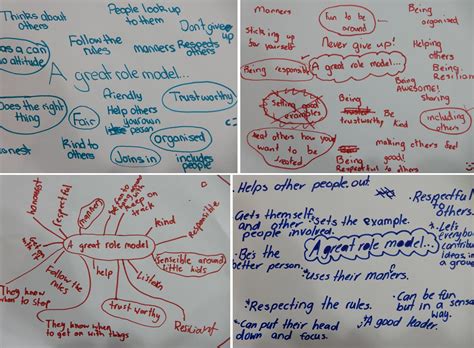 Thinks about
others
People look up
to them
Don't give
up
as a can
do attitude
Follow the
rules
manners
Respects
others
A great role model...
friendly
Trustworthy
Does the right
thing
Fair
Help others
your own
person
organised
Kind to
others
Joins in
includes
people
Manners
fun to be
around
Being
organised
Sticking up
for yourself
Never give up!
Helping
others
Being responsible
A great role model...
Being
Resiliant
Being
Awesome!
sharing
Setting good
examples
Being
trustworthy
Be kind
including
others
treat others how you
want to be
treated
making others feel
good!
Being
Respectful to others
respectful
manners
keep on
track
kind
Responsible
A great role model
Sensible around
little kids
Follow the
rules
help
Listens
They know
when to stop
trustworthy
They know when
to get on with things
Resiliant
Helps other people out.
Respectful
to others
Gets themself
and other
people involved.
Sets the example.
Let's
everybody
contribute
ideas in
a group
A great role model...
Be's the
better person.
Uses their manners.
Respecting the rules.
Can be fun
but in a sensible
way.
Can put their head
down and focus.
A good leader.